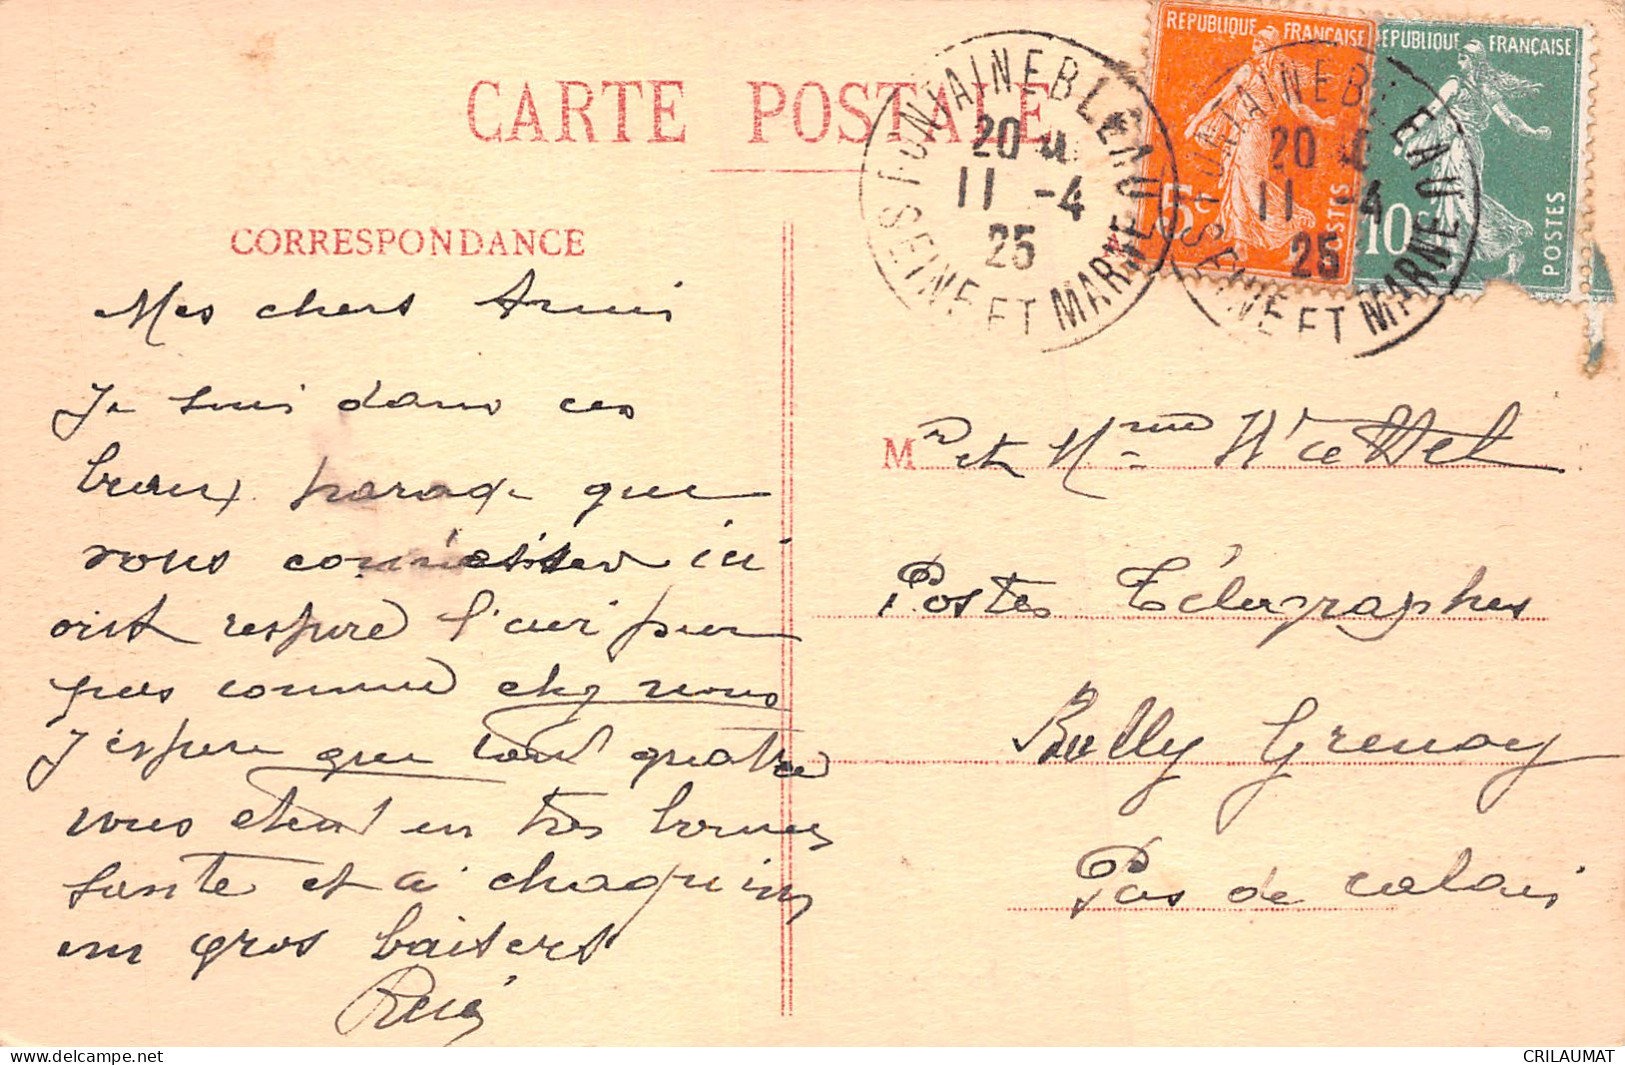 CARTE POSTALE
REPUBLIQUE FRANÇAISE
5c
POSTES
EPUBLIQUE FRANÇAISE
10c
POSTES
FONTAINEBLEAU
20
11 -4
25
SEINE ET MARNE
FONTAINEBLEAU
20
11 -4
25
SEINE ET MARNE
CORRESPONDANCE
Mes chers Amis
Je suis dans ces
beaux parage que
vous connaissez ici
ont respire l'air pur
pas comme chez vous
J'espere que tout quatre
vous etent en très bonnes
sante et a chaqu'un
un gros baisers
René
Mr et Mme
Postes Télegraphes
Bully Grenay
Pas de Calais
CRILAUMAT